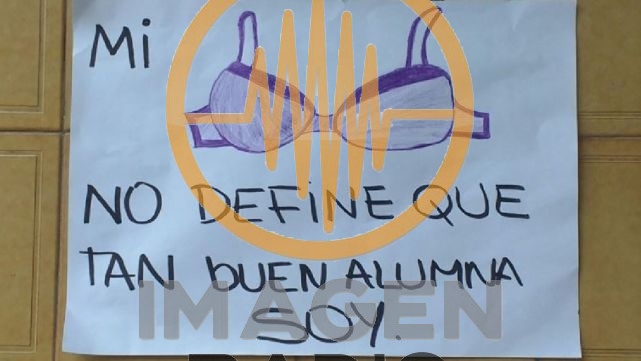 Mi
NO DEFINE QUE
TAN bUEN ALUMNA
SOY.
IMAGEN
RADIO